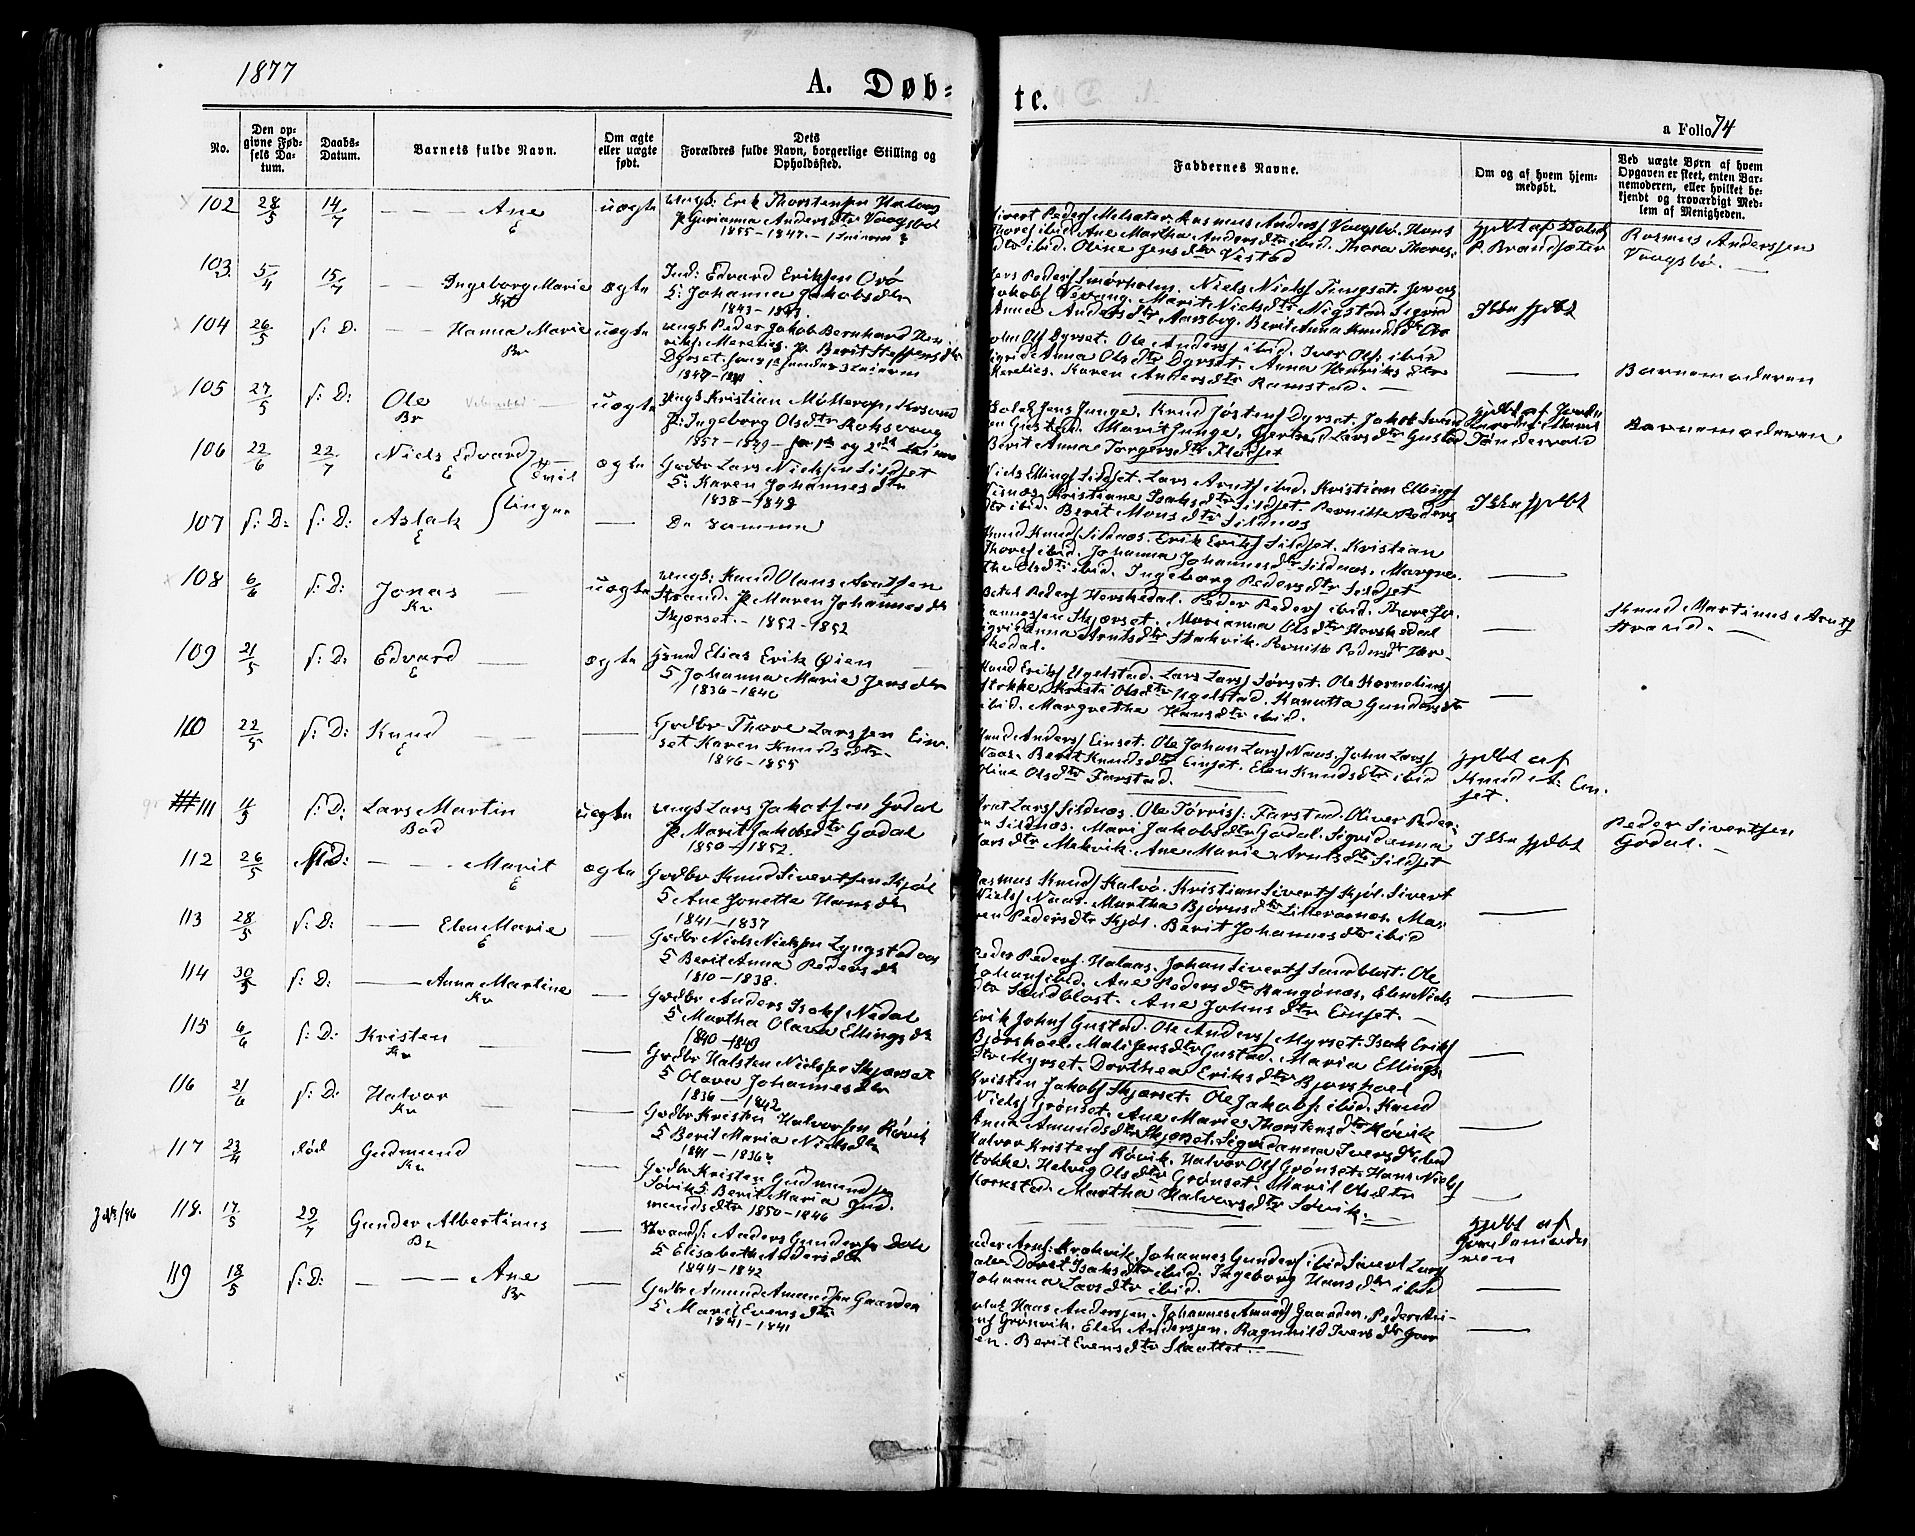 1877
A. Døb-
te.
a Folio 74
No.
Den op-
givne Fød-
sels Da-
tum.
Daabs-
Datum.
Barnets fulde Navn.
Om ægte
eller uægte
født.
Dets
Forældres fulde Navn, borgerlige Stilling og
Opholdssted.
Faddernes Navne.
Om og af hvem hjem-
medøbt.
Ved uægte Børn af hvem
Opgaven er skeet, enten Bar-
nemoderen, eller hvilket be-
kjendt og troværdigt Med-
lem af Menigheden.
102 28/5 14/7 Ane uægte
E
Ungk: Erik Thorstensen Halaas
P. Gurianna Andersdtr Vaagsbø
1855-1847.
Sivert Peders Melsæter. Rasmus Anders Vaagsbø. Hans
Thores ibid. Ane Martha Andersdtr ibid. Thora Thores-
dtr ibid. Oline Jensdtr Vestad
P. Brandsæter
Rasmus Anderssen
Vaagsbø.
103 5/4 15/7 Ingeborg Marie ægte
Kv
Ind: Edvard Eriksen Orø
Johanna Jakobsdtr
Lars Peders Smørholm. Niels Niels Tingset. Jonas
Jakobs Vevang. Marit Nielsdtr Nigstad. Sigrid
Anna Andersdtr Aarsbog. Berit Anna Knudsdtr Orø
Ikke hjdbt
104 26/5 s: D: Hanna Marie uægte
Br
ungk: Peder Jakob Bernhard Hen-
riks. Merelies. P. Berit Steffensdtr
Dyrset.
John Ols Dyrset. Ole Anders ibid. Iver Ols: ibid
Sigrid Anna Olsdtr Dyrset. Anna Henriksdtr
Merelies. Karen Andersdtr Ramstad.
Barnemoderen
105 27/5 s: D: Ole uægte
Br
ungk Kristian Møllerop, Krsund
P: Ingeborg Olsdtr Roksvaag
1857-1849
Jens Junge. Knud Jøstens Dyrset. Jakob
Gustad. Marit Junge. Gjertrud Larsdtr Gustad
Berit Anna Torgersdtr Flatset
hjdbt af
Tøndervold
Barnemoderen
106 22/6 22/7 Niels Edvard ægte
E
Tvil
linger
Gadbr Lars Nielssen Sildset
Karen Johannesdtr
1838-1842
Niels Ellings Sildset. Lars Arnts ibid. Kristian Ellings
Visnæs. Kristiane Isaksdtr Sildset. Pernille Peders
dtr ibid. Berit Monsdtr Sildnæs
Ikke hjdbt
107 s: D: s: D: Aslak
E
De samme
Knud Knuds Sildnæs. Erik Eriks Sildset. Kristian
Thores ibid. Johanna Johannesdtr Sildnæs. Margre-
the Olsdtr ibid. Ingeborg Pedersdtr Sildset
108 6/6 s: D: Jonas uægte
Kv
ungk: Knud Olaus Arntsen
Strand. P. Maren Johannesdtr
Skjørset. - 1852-1852
Peders Horskedal. Peder Peders ibid. Thore Jo-
hannessen Skjørset. Marianna Olsdtr Horskedal
Sigridanna Arntsdtr Stakvik. Pernille Pedersdtr Hor-
skedal.
Knud Martinus Arnts
Strand.
109 21/5 s: D: Edvard ægte
E
Elias Erik Øien
Johanna Marie Jensdtr
1836-1840
Knud Eriks Ugelstad. Lars Lars Sørset. Ole Kornelius
Stokke. Kristi Olsdtr Ugelstad. Kanutta Gundersdtr
ibid. Margrethe Hansdtr ibid.
110 22/5 s: D: Knud
E
Gadbr Thore Larssen Ein-
set Karen Knudsdtr
1846-1855
Knud Anders Einset. Ole Johan Lars Naas. John Lars
Naas. Berit Knudsdtr Einset. Elen Knudsdtr ibid
Oline Olsdtr Farstad.
hjdbt af
Knud A. Ein-
set.
111 s: D: Lars Martin uægte
Bod
ungk Lars Jakobsen Godal
P. Marit Jakobsdtr Godal
1850-1852.
Arnt Lars Sildnæs. Ole Tørris: Farstad. Oliver Peder-
sen Sildnæs. Mari Jakobsdtr Godal. Sigridanna
Larsdtr Mekvik. Ane Marie Arntsdtr Sildset
Ikke hjdbt
Peder Sivertsen
Godal.
112 26/5 s: D: Marit ægte
E
Gadbr Knud Sivertsen Skjøl
Ane Jonetta Hansdtr
1841-1837
Rasmus Knuds Kalvø. Kristian Siverts Skjøl. Sivert
Niels Naas. Martha Bjørnsdtr Lillevarnes. Ma-
ren Pedersdtr Skjøl. Berit Johannesdtr ibid
113 28/5 s: D: Elen Marie
E
Gadbr Niels Nielssen Lyngstadaas
Berit Anna Pedersdtr
1810-1838.
Peder Peders. Halaas. Johan Siverts Sandblost. Ole
Johans ibid. Ane Pedersdtr Hangønæs. Elen Niels
dtr Sandblost. Ane Johnsdtr Einset.
114 30/5 s: D: Anna Martine
Kv
Gadbr Anders Isaks Nedal
Martha Olava Ellingsdtr
1840-1849
Erik Johns Gustad. Ole Anders Myrset. Isak Eriks
Bjørshoel. Mali Jensdtr Gustad. Maria Ellings-
dtr Myrset. Dorthea Eriksdtr Bjørshoel
115 6/6 s: D: Kristen
Kv
Gadbr Halsten Nielssen Skjørset
Olava Johannesdtr
1836-1842
Kristen Jakobs Skjørset. Ole Jakobs: ibid. Knud
Niels Grønset. Ane Marie Thorstensdtr Høvik
Anna Amundsdtr Skjørset. Sigridanna Iversdtr ibid
116 21/6 s: D: Halvor
Kv
Gadbr Kristen Halvorsen Røvik
Berit Maria Nielsdtr
1841-1836
Halvor Kristens Røvik. Halvor Ols Grønset. Hans Niels
Stokke. Helvig Olsdtr Grønset. Marit Olsdtr
Hornstad. Martha Halvorsdtr Sørvik.
117 23/4 død Gudmund
Kv
Gadbr Kristen Gudmundsen
Sørvik Berit Maria Gud-
mundsdtr 1850-1846
118. 17/5 29/7 Gunder Albertinus
Br
Strands: Anders Gundersen Dale
Elisabeth Andersdtr
1844-1842
Peder Arns: Krokvik. Johannes Gunders ibid Sivert Lars
Dale. Doret Isaksdtr ibid. Ingeborg Hansdtr ibid
Johanna Larsdtr ibid.
hjdbt af
Jordemoder
119 18/5 s: D: Ane
Br
Gadbr Amund Amundsen Gaarden
Marit Evensdtr
1841-1841
Hans Anderssen. Johannes Amunds Gaarden. Peder Kri-
Grønvik. Elen Anderssen. Ragnhild Iversdtr Gaar
den. Berit Evensdtr Slauttet.